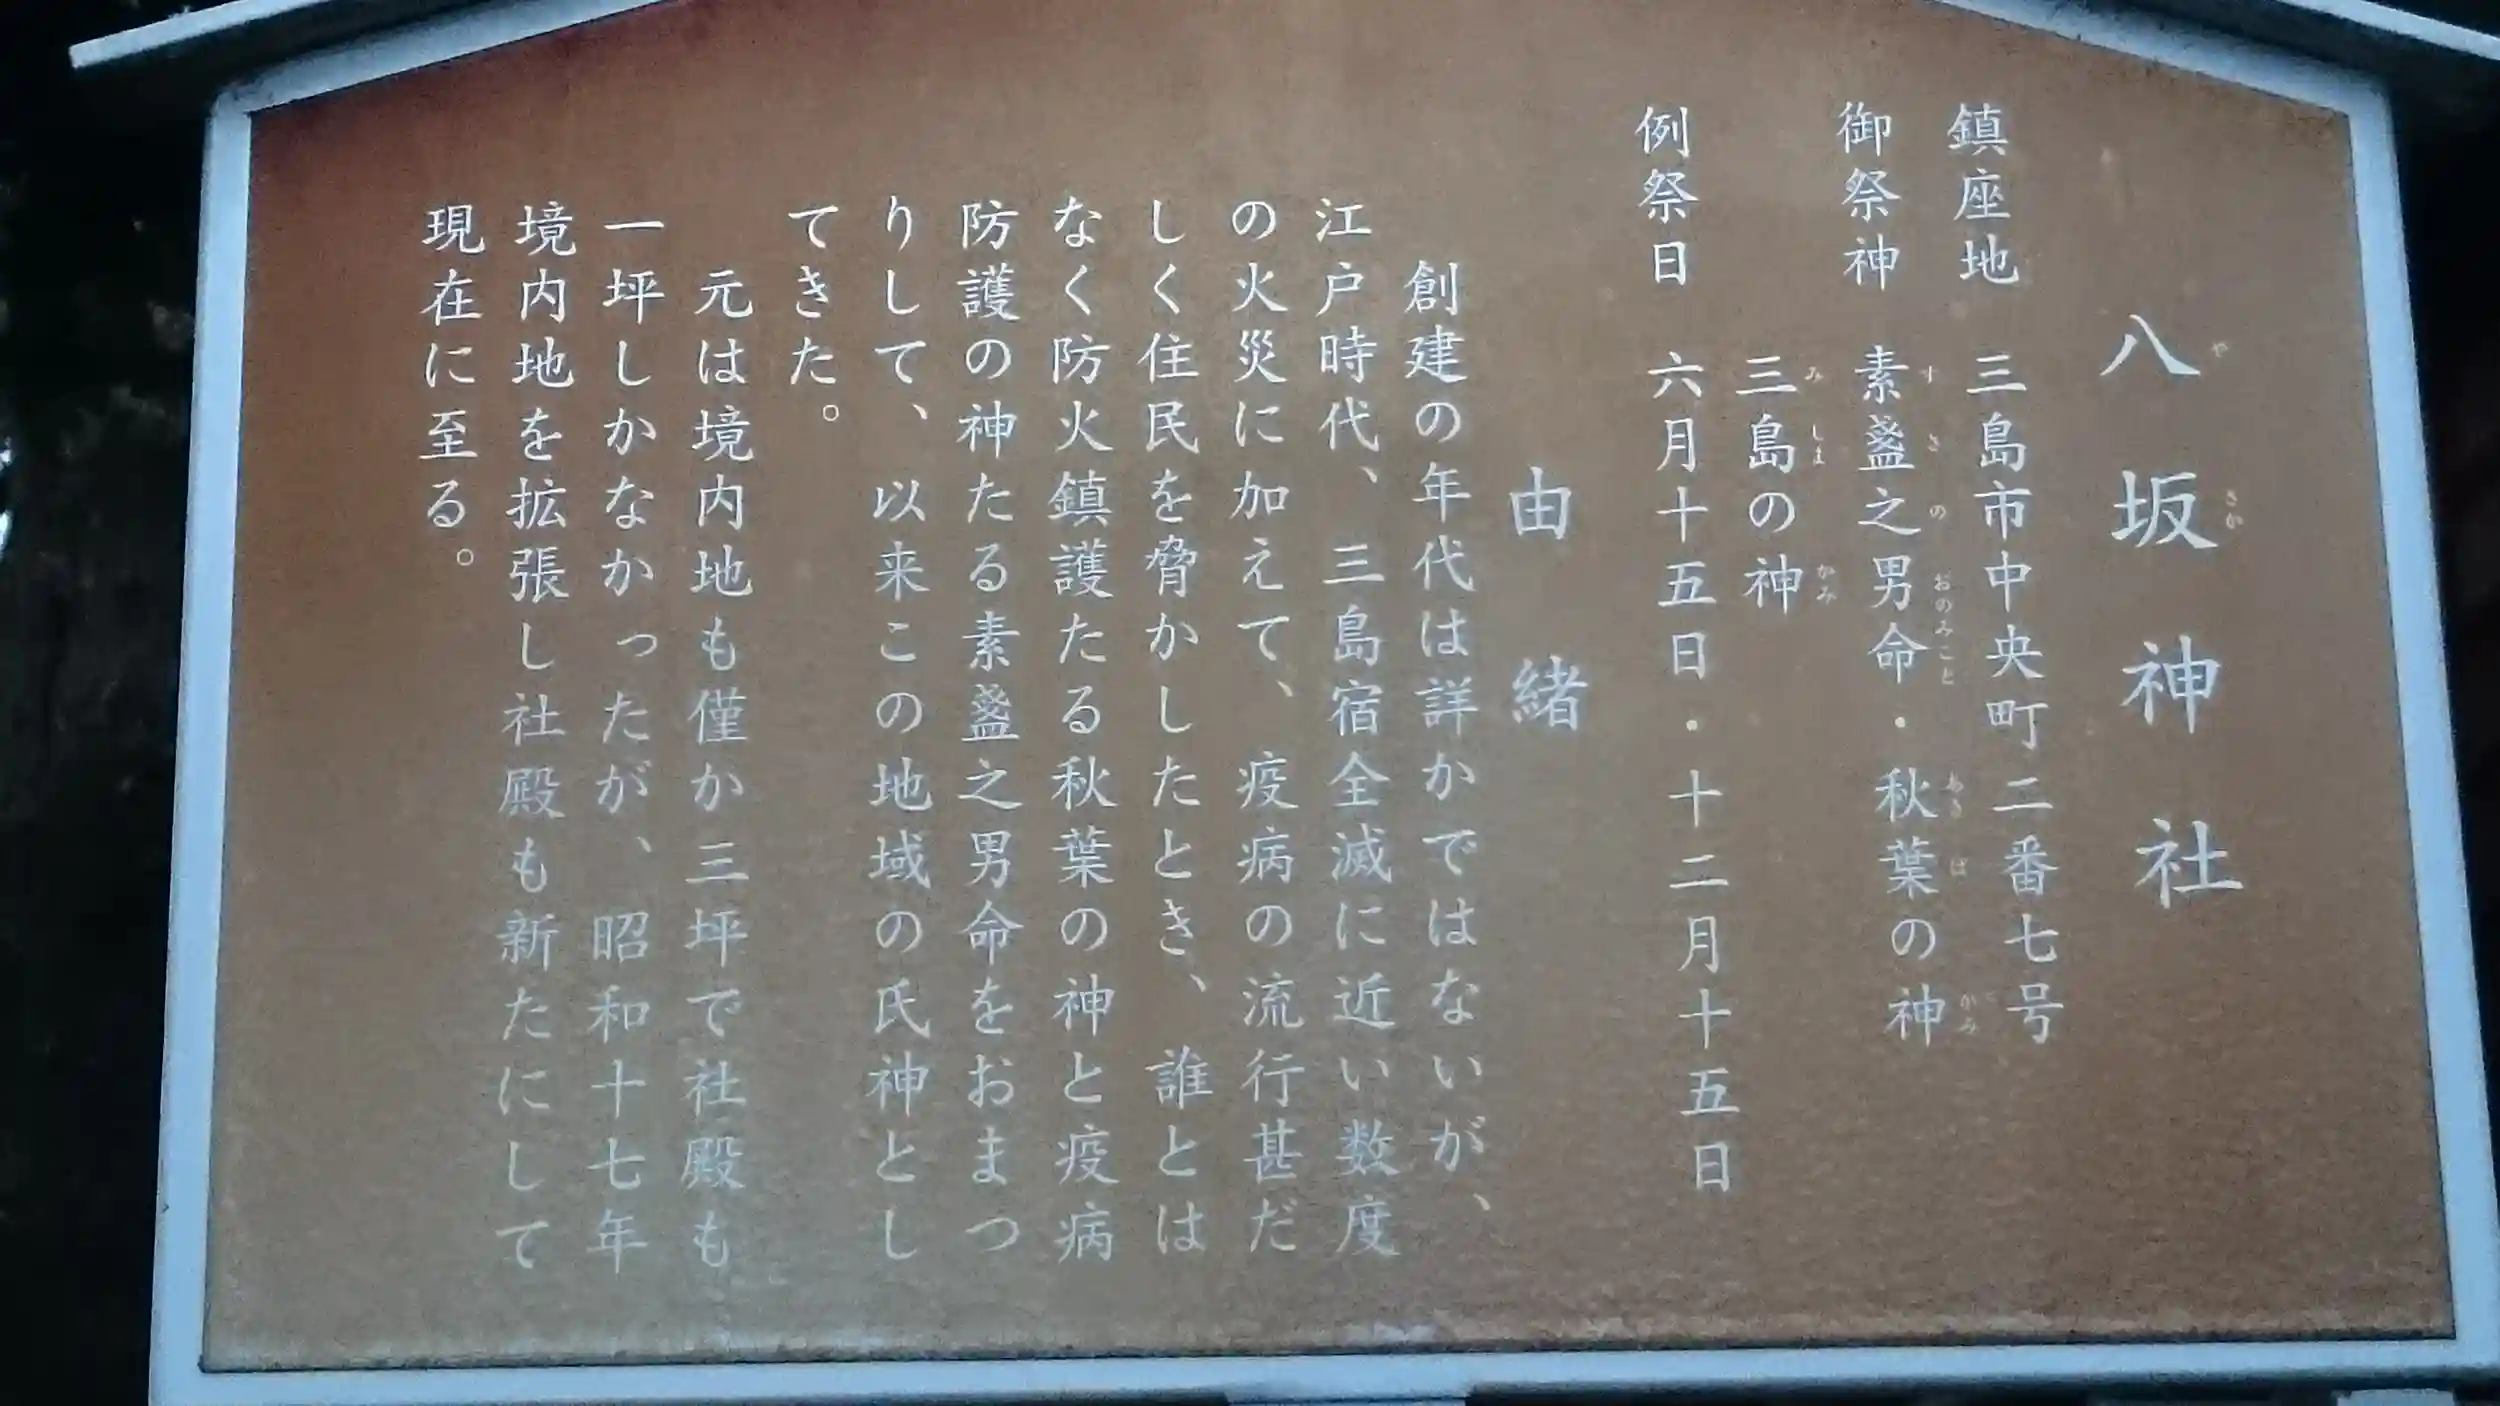 八坂神社
鎮座地 三島市中央町二番七号
御祭神 素盞之男命・秋葉の神
三島の神
例祭日 六月十五日・十二月十五日
由緒
創建の年代は詳かではないが、
江戸時代、三島宿全滅に近い数度
の火災に加えて、疫病の流行甚だ
しく住民を脅かしたとき、誰とは
なく防火鎮護たる秋葉の神と疫病
防護の神たる素盞之男命をおまつ
りして、以来この地域の氏神とし
てきた。
元は境内地も僅か三坪で社殿も
一坪しかなかったが、昭和十七年
境内地を拡張し社殿も新たにして
現在に至る。
や
さか
すさのおのみこと
あきば
かみ
みしま
かみ